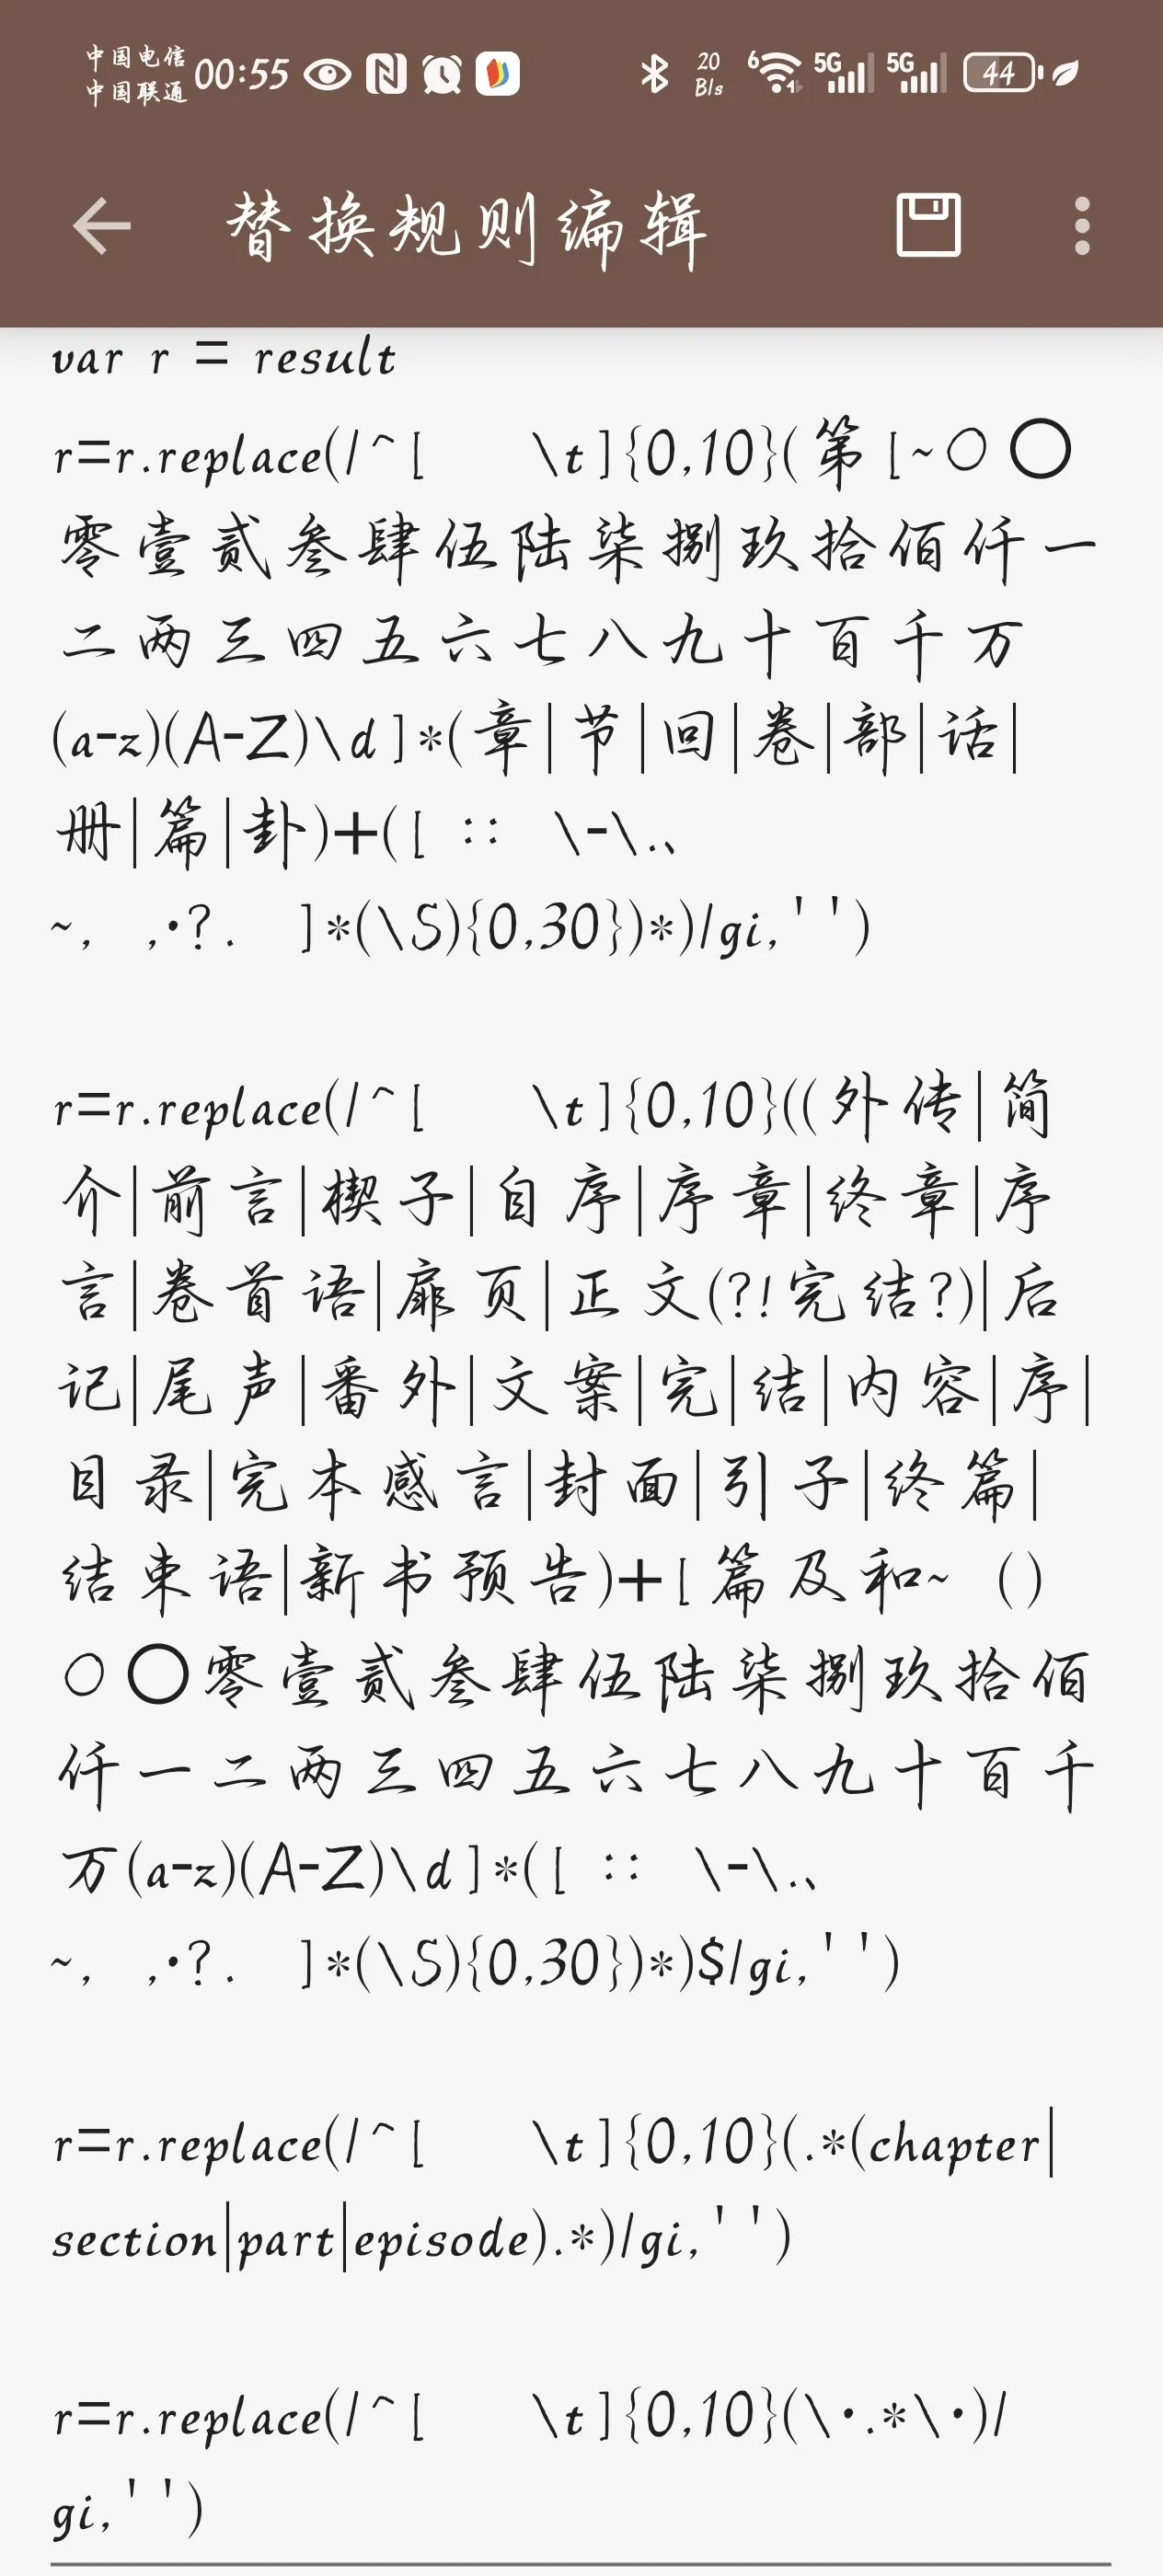 中国电信
中国联通 00:55 20 B/s 6 5G 5G 44
替换规则编辑
var r = result
r=r.replace(/^[　 \t]{0,10}(第[~○〇
零壹贰叁肆伍陆柒捌玖拾佰仟一
二两三四五六七八九十百千万
(a-z)(A-Z)\d]*(章|节|回|卷|部|话|
册|篇|卦)+([ ::　\-\.、
~,　,·?.　]*(\S){0,30})*)/gi,'')
r=r.replace(/^[　 \t]{0,10}((外传|简
介|前言|楔子|自序|序章|终章|序
言|卷首语|扉页|正文(?!完结?)|后
记|尾声|番外|文案|完|结|内容|序|
目录|完本感言|封面|引子|终篇|
结束语|新书预告)+[篇及和~ ()
○〇零壹贰叁肆伍陆柒捌玖拾佰
仟一二两三四五六七八九十百千
万(a-z)(A-Z)\d]*([ ::　\-\.、
~,　,·?.　]*(\S){0,30})*)$/gi,'')
r=r.replace(/^[　 \t]{0,10}(.*(chapter|
section|part|episode).*)/gi,'')
r=r.replace(/^[　 \t]{0,10}(\·.*\·)/
gi,'')